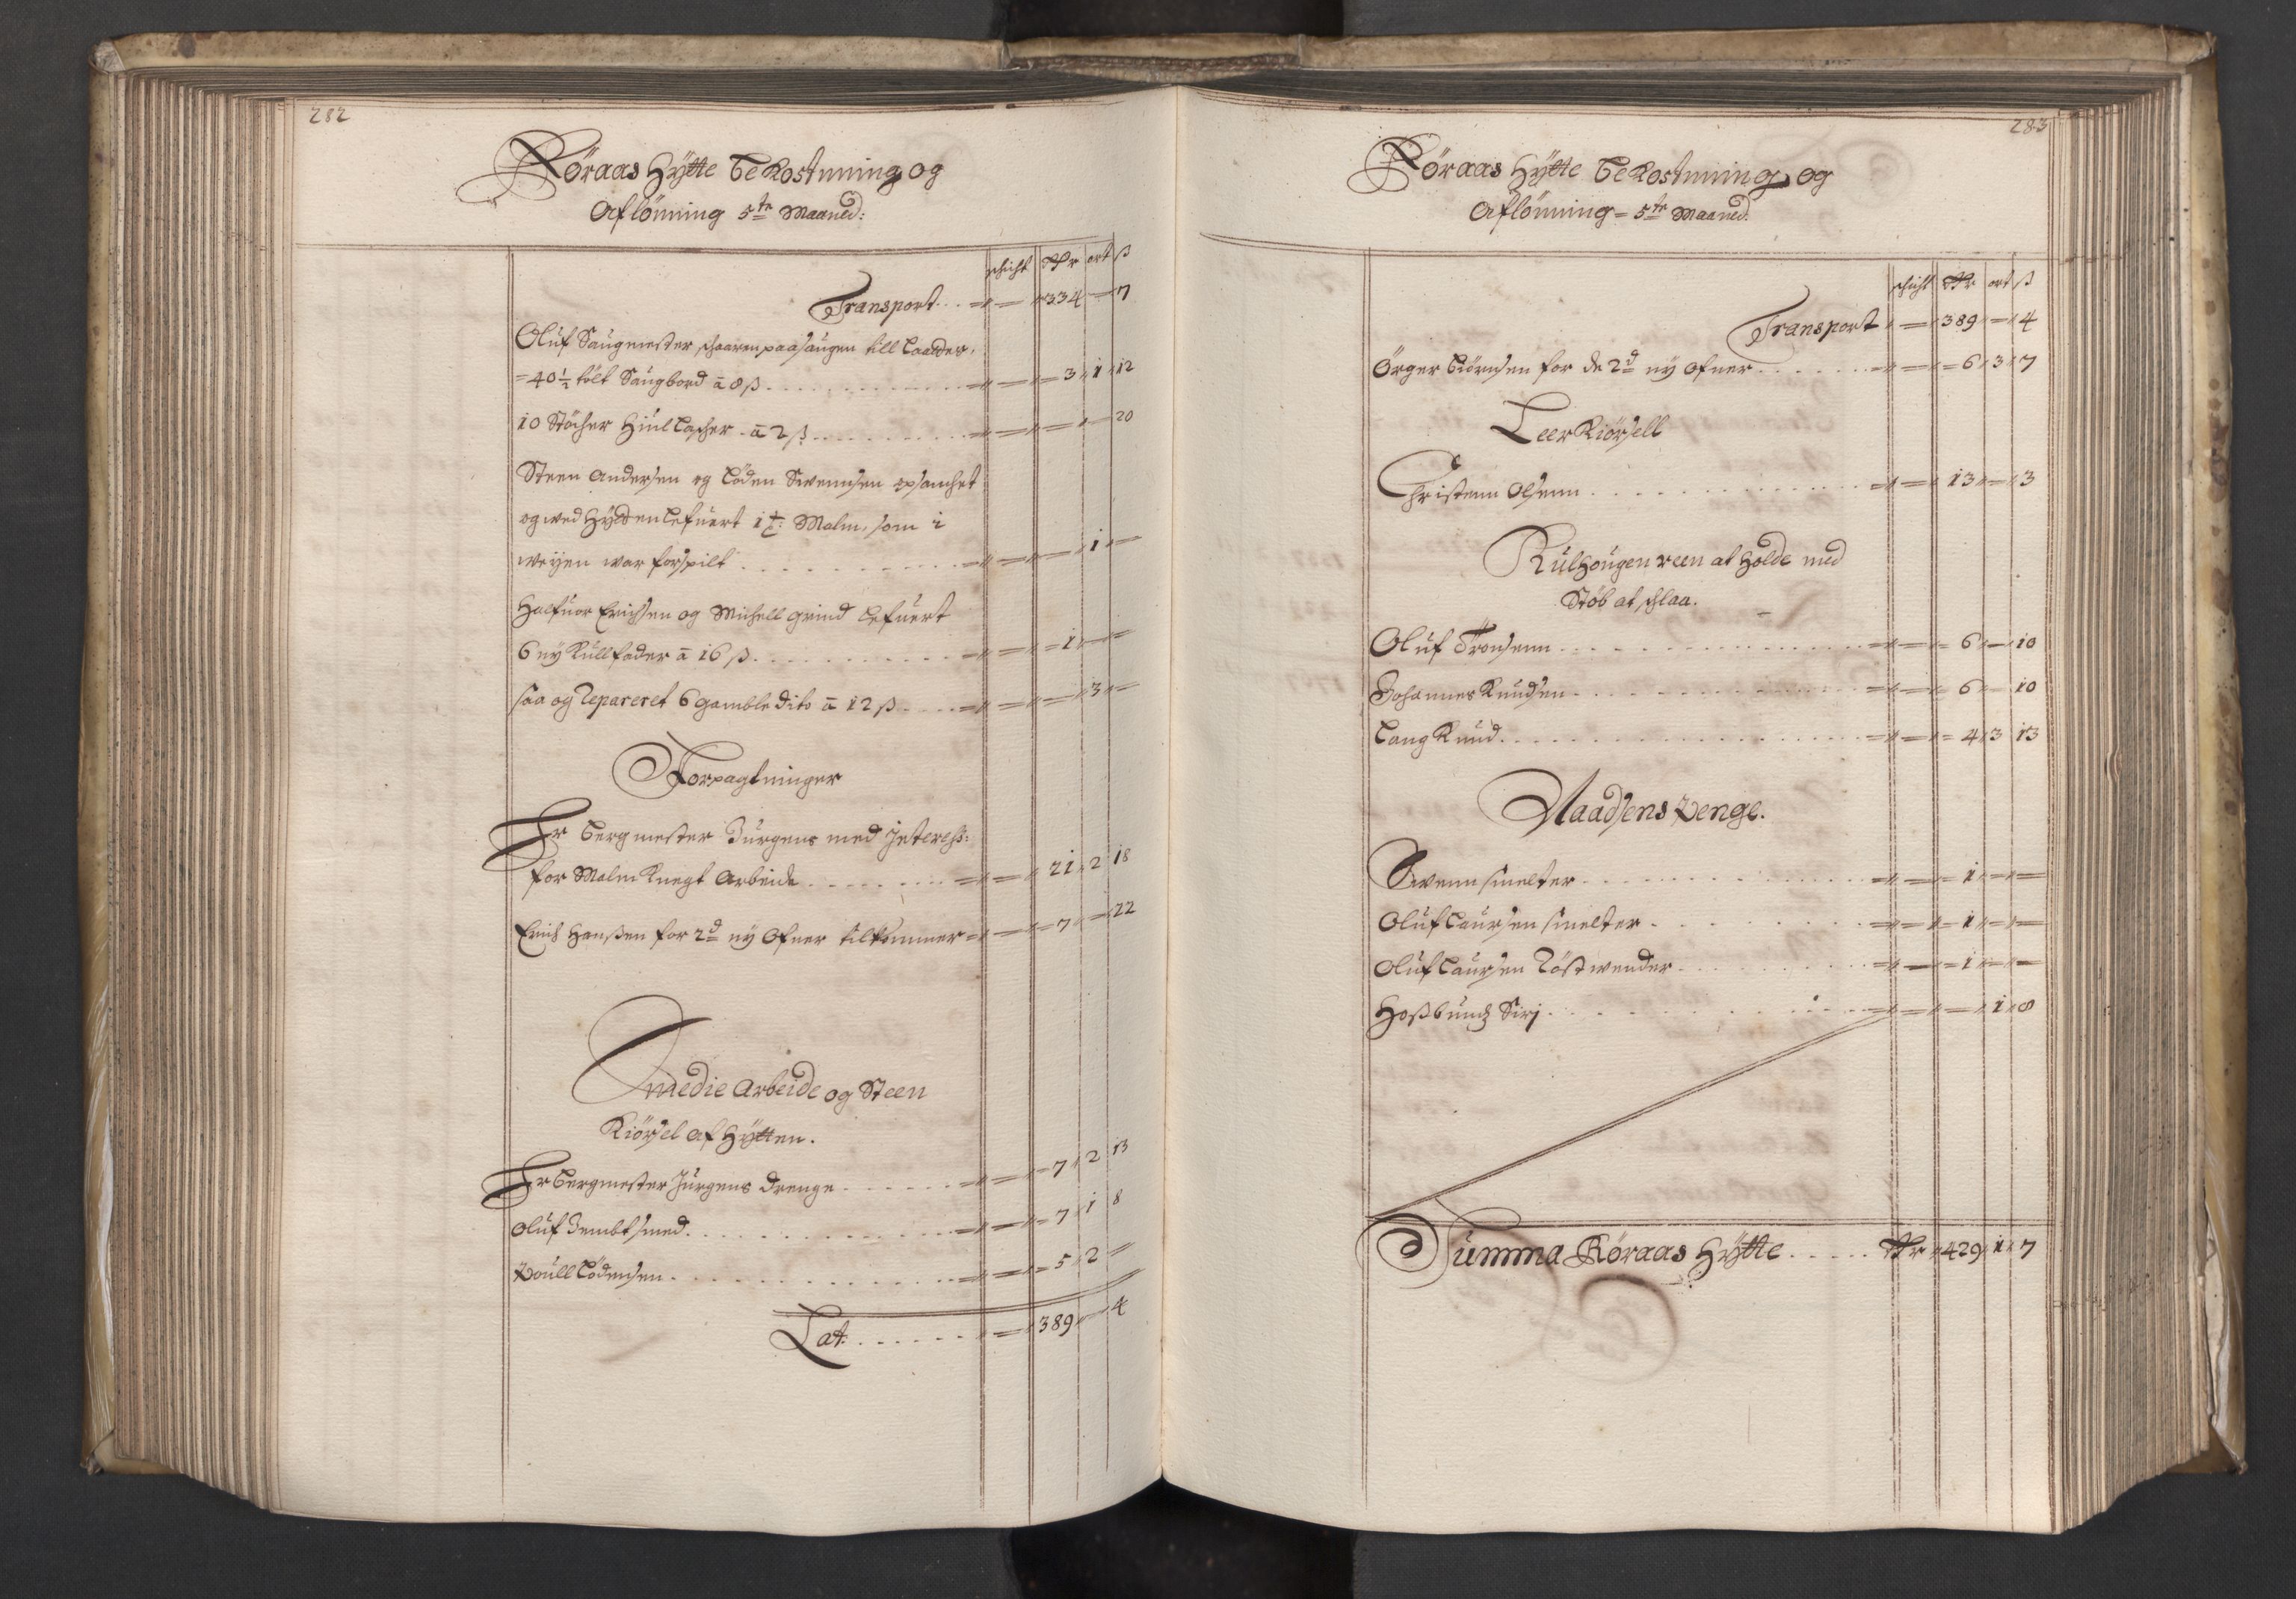 282
Röraas Hÿtte bekostnning og
Aflönning 5te Maaned:
schicht Rdr ort ß
Transport... 334 — 7
Oluf Saugmester schaaren paa saugen till Laaden,
40½ tölt Saugbord â 8 ß 3 1 12
10 Støcher Hiul â 2 ß 20
Steen Andersen og Löden Svennsen opsanchet
og wed Hÿtten lefuert 1 t: Malm, som i
weÿen war forspilt 1 —
Halfuor Erichsen og Michell Grind lefuert
6 nÿ Kullfader â 16 ß 1 —
saa og repareret 6 gamble dito â 12 ß 3 —
Forpagtninger
Hr Bergmester Jürgens med Jnteress:
for Malm Knegt Arbeide 21 2 18
Erich Hanßen for 2d nÿ Ofner tilkommer 7 — 22
Smedie Arbeide og Steen
Kiörsel af Hÿtten.
Hr Bergmester Jürgens Drenge 7 2 13
Oluf Jembtsmed 7 1 8
Poull Lödensen 5 2 —
Lat: 389 — 4
283
Röraas Hÿtte bekostnning og
Aflönning 5te Maaned:
schicht Rdr ort ß
Transport 389 — 4
Örger Biörnsen for de 2d nÿ Ofner 6 3 7
Leer Kiörsell
Christenn Olsenn 13 — 3
Kulhougen reen at holde med
Støb at schlaa.
Oluf Tronsenn 6 — 10
Johannes Knudsen 6 — 10
Lang Knud 4 3 13
Naadsens Penge.
Swenn smelter 1 — —
Oluf Laursen smelter 1 — —
Oluf Laursen Röstwender 1 — —
Hoßbundz Sirj 1 8
Summa Röraas Hÿtte Rdr 429 1 7